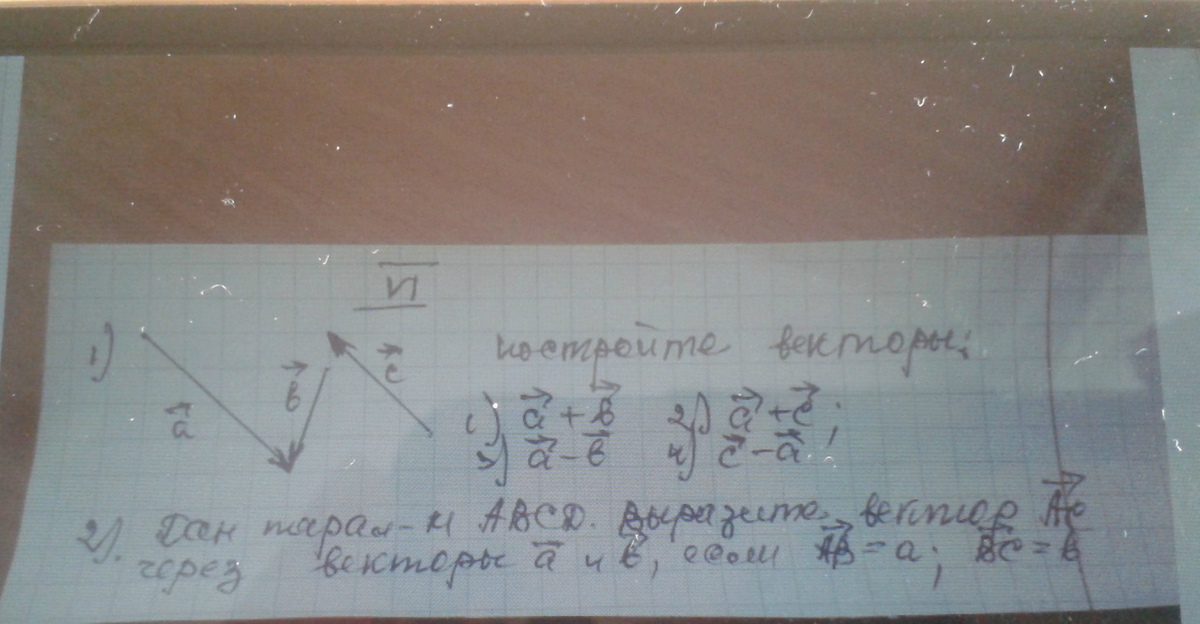 VI
1)
a b c
постройте векторы:
1) a + b 2) a + c ;
3) a - b 4) c - a
2). Дан парал-м ABCD. Выразите вектор AC
через векторы a и b, если AB = a; BC = b